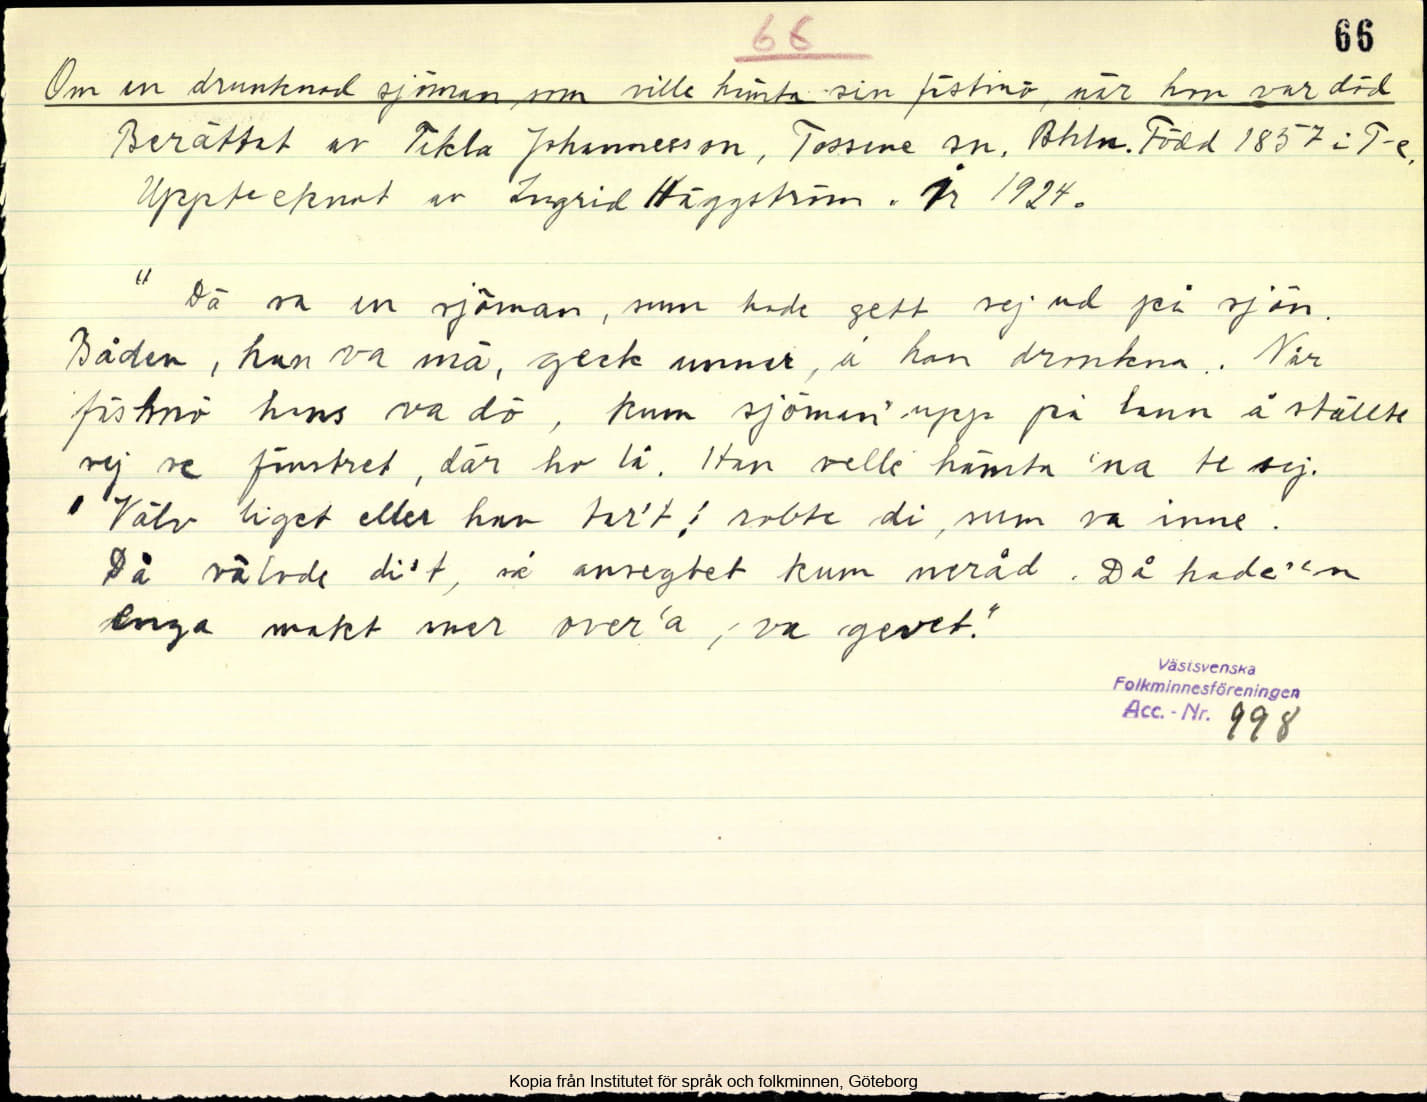 66
66
Om en drunknad sjöman, som ville hämta sin fästmö, när hon var död
Berättat av Tekla Johannesson, Tossene sn, Bhln. Född 1857 i T-e.
Upptecknat av Ingrid Häggström. År 1924.
"Dä va en sjöman, sum hade gett sej ud på sjön.
Båden, han va mä, geck unner, å han dronkna. När
fästmö hans va dö, kum sjöman' upp på lann å ställte
sej ve fönstret, där ho lå. Han velle hämta 'na te sej.
'Välv liget eller han tar't!' robte di, sum va inne.
Då välvde di't, så ansegtet kum neråd. Då hade''n
enga makt mer over'a, va gevet."
Västsvenska
Folkminnesföreningen
Acc.-Nr. 998
Kopia från Institutet för språk och folkminnen, Göteborg